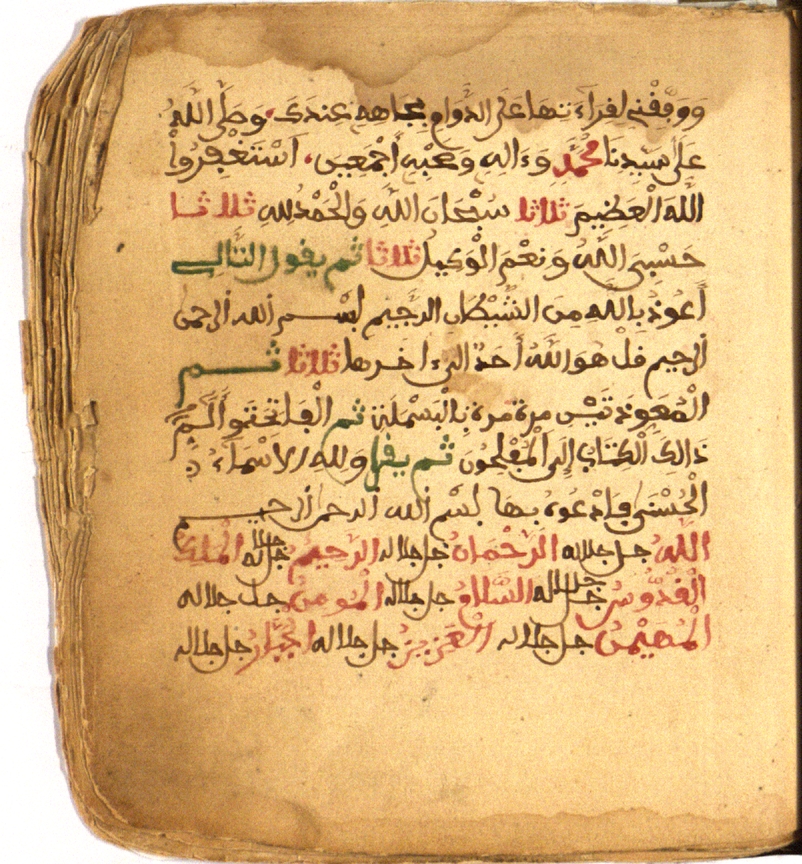 ووفقني لقراءتها على الدوام بجاهه عندك وصلى الله
على سيدنا محمد وءاله وصحبه أجمعين، استغفروا
الله العظيم ثلاثا سبحان الله والحمد لله ثلاثا
حسبي الله ونعم الوكيل ثلاثا ثم يقول التالي
أعوذ بالله من الشيطان الرجيم بسم الله الرحمن
الرحيم قل هو الله أحد إلى ءاخرها ثلاثا ثم
المعوذتين مرة مرة بالبسملة ثم الفاتحة والم
ذالك الكتاب إلى المفلحون ثم يقرأ ولله الاسماء
الحسنى فادعوه بها بسم الله الرحمن الرحيم
الله جل جلاله الرحمان جل جلاله الرحيم جل جلاله الملك
القدوس جل جلاله السلام جل جلاله المومن جل جلاله
المهيمن جل جلاله العزيز جل جلاله الجبار جل جلاله